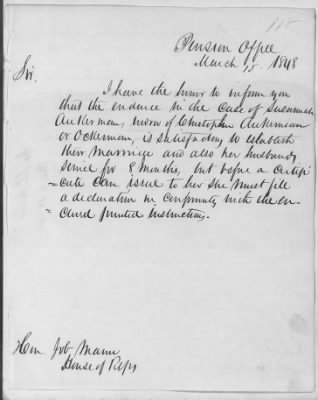 118
Pension Office
March 15. 1848
Sir.
I have the honor to inform you
that the evidence in the case of Susannah
Aukerman, widow of Christopher Aukerman
or Ockerman, is satisfactory to establish
their marriage and also her husbands
service for 8 months, but before a certifi
=cate can issue to her she must file
a declaration in conformity with the en-
=closed printed instructions.
Hon Job Mann
House of Reps